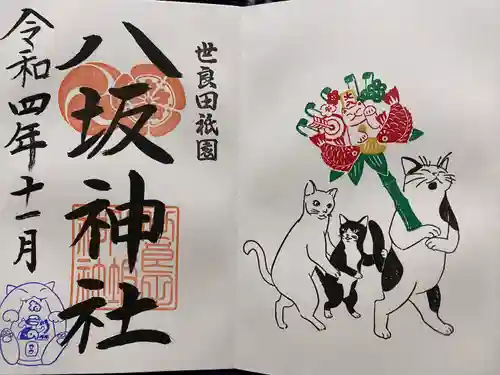 世良田祇園
八坂神社
令和四年十一月